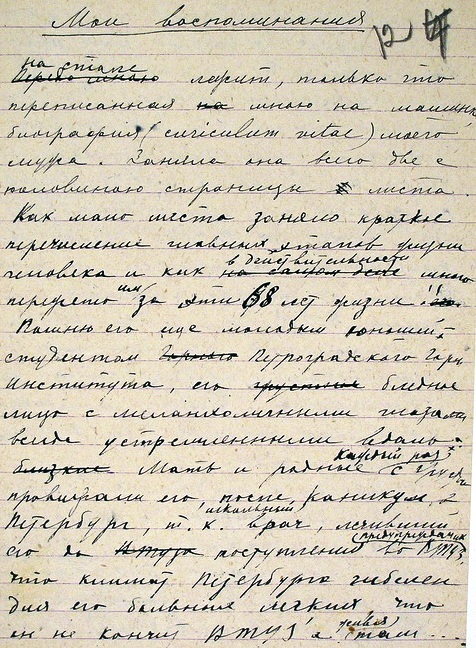 Мои воспоминания
12
на столе
Передо мною лежит, только что
переписанная на мною на машинке
биография (curiculum vitae) моего
мужа. Заняла она всего две с
половиною страницы листа
Как мало места заняло краткое
перечисление главных этапов жизни
в действительности
человека и как на самом деле много
им
пережето за эти 68 лет жизни!!
Помню его еще молодым юношей
студентом Горного Петроградского Горн
Института, его грустное бледное
лицо с меланхоличными глазами
всегда устремленными вдаль.
каждый раз
близкие Мать и родные с грустью
провожали его, после, каникул, в
школьный
Петербург, т. к. врач, лечивший
(предупреждал
его до поступления во ВТУЗ
что климат Петербурга гибелен
для его больных легких что
он не кончит ВТУЗ'а там...